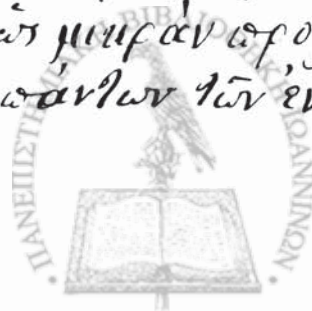 ὡς μικρὰν προ
πάντων τῶν ἐν
ΠΑΝΕΠΙΣΤΗΜΙΑΚΗ ΒΙΒΛΙΟΘΗΚΗ ΙΩΑΝΝΙΝΩΝ